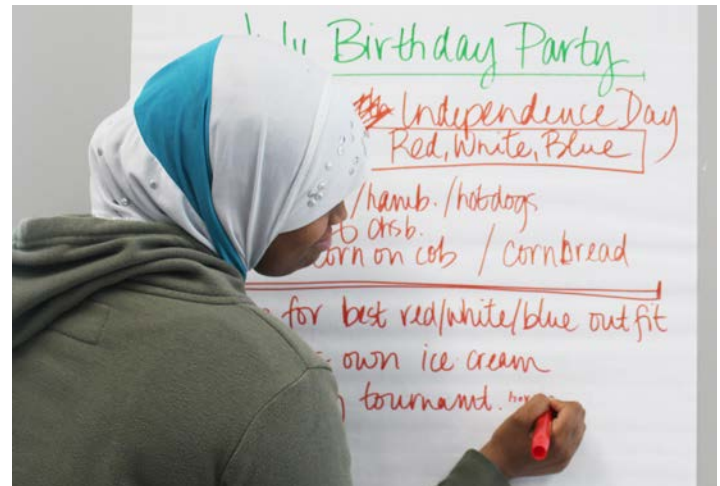 Birthday Party
Independence Day
Red, White, Blue
/hamb. /hotdogs
chsb.
corn on cob / cornbread
for best red/white/blue outfit
own ice cream
tournamt.